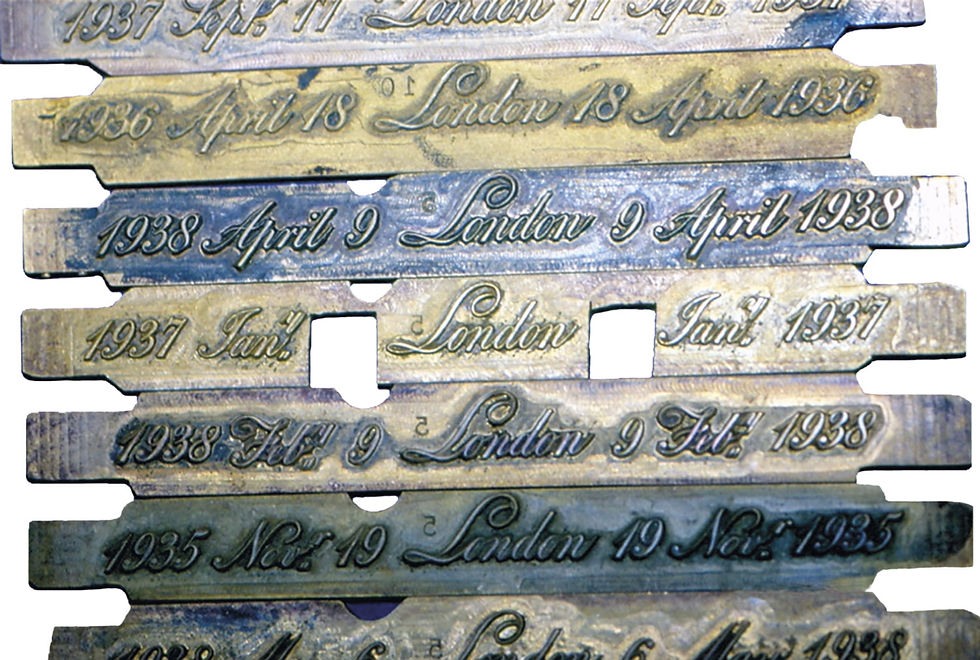 1937 Sepr. 17 London 17 Sepr. 1937
1936 April 18 London 18 April 1936
1938 April 9 London 9 April 1938
1937 Jany. London Jany. 1937
1938 Feby. 9 London 9 Feby. 1938
1935 Novr. 19 London 19 Novr. 1935
1938 6 London 6 May 1938